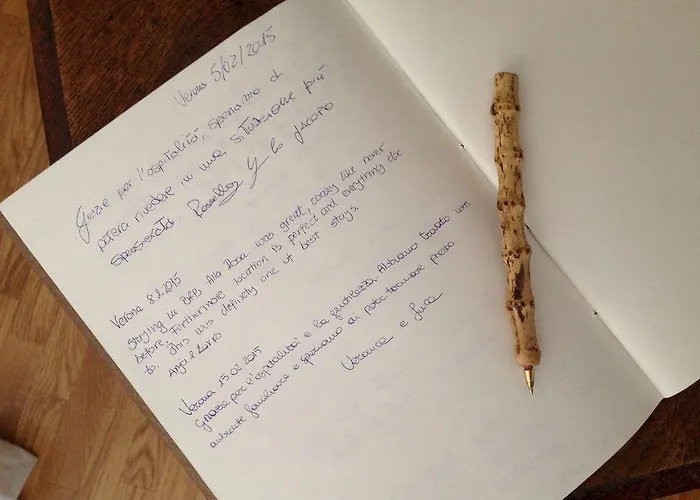 Verona 5/02/2015
Grazie per l'ospitalità, speriamo di
poterci rivedere in una situazione più
spensierata.
Verona 8.2.2015
Staying in B&B Alla Rosa was great, coosy like never
before. Forthermore location is perfect and everything else
to. This was definetly one of best stays.
Verona 15.02.2015
Grazie per l'ospitalità e la gentilezza. Abbiamo trovato un
ambiente familiare e speriamo di poter tornare presto
Veronica e Luca